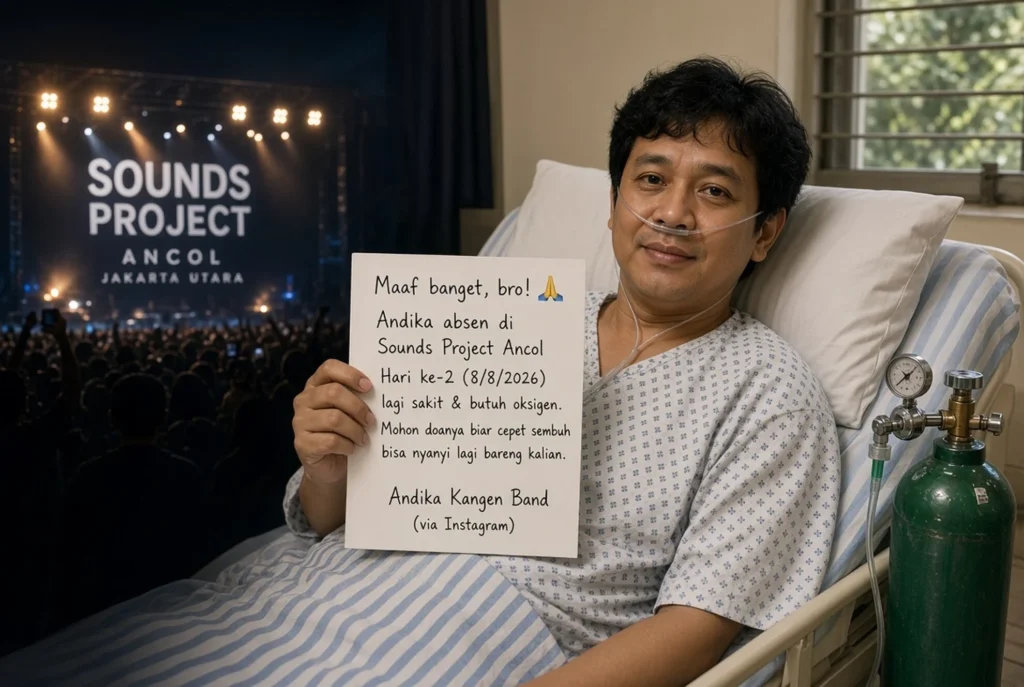 SOUNDS
PROJECT
ANCOL
JAKARTA UTARA
Maaf banget, bro! 🙏
Andika absen di
Sounds Project Ancol
Hari ke-2 (8/8/2026)
lagi sakit & butuh oksigen.
Mohon doanya biar cepet sembuh
bisa nyanyi lagi bareng kalian.
Andika Kangen Band
(via Instagram)